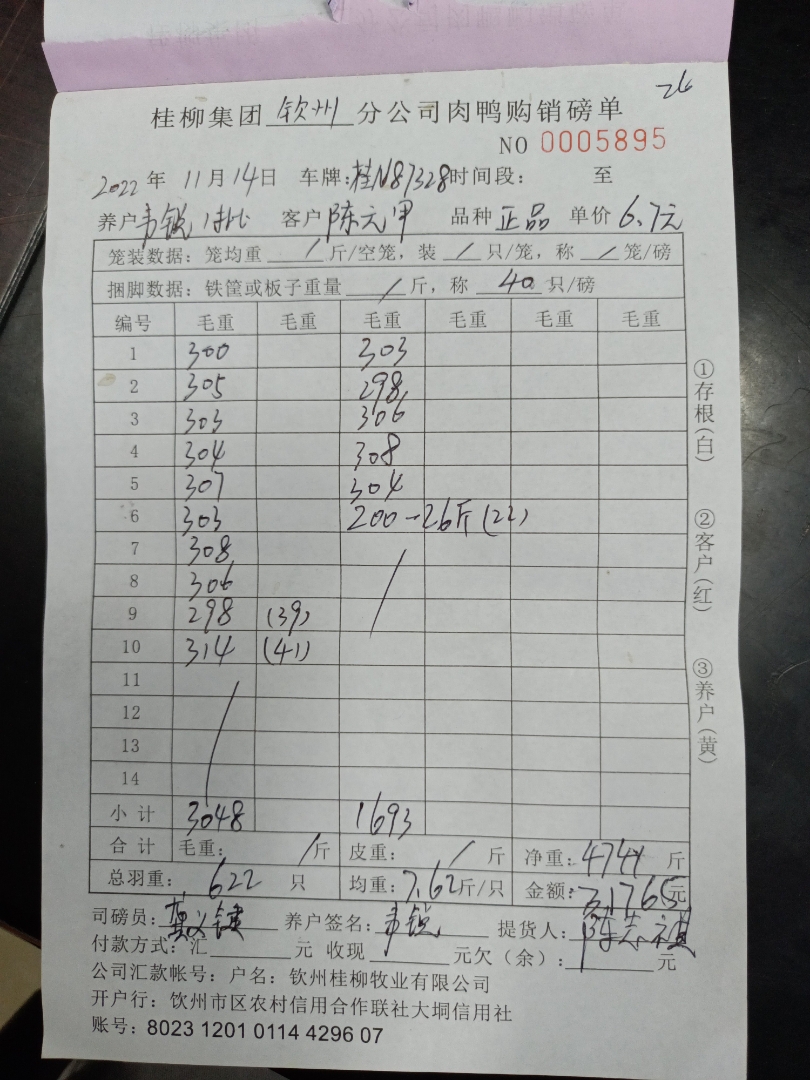 26
桂柳集团 钦州 分公司肉鸭购销磅单
NO 0005895
2022年 11月14日 车牌:桂N87328时间段: 至
养户韦锐1批 客户陈元甲 品种 正品 单价 6.7元
笼装数据: 笼均重 / 斤/空笼, 装 / 只/笼, 称 / 笼/磅
捆脚数据: 铁筐或板子重量 / 斤, 称 40 只/磅
编号 毛重 毛重 毛重 毛重 毛重 毛重
1 300 303
2 305 298
3 303 306
4 304 308
5 307 304
6 303 200-26斤(22)
7 308
8 306 /
9 298 (39)
10 314 (41)
11
12 /
13
14
小计 3048 1693
合计 毛重: / 斤 皮重: / 斤 净重: 4741 斤
总羽重: 622 只 均重: 7.62斤/只 金额: 31765元
司磅员: 养户签名: 韦锐 提货人: 陈志祺
付款方式: 汇 元 收现 元欠(余): 元
公司汇款帐号: 户名: 钦州桂柳牧业有限公司
开户行: 钦州市区农村信用合作联社大垌信用社
账号: 8023 1201 0114 4296 07
①存根(白)
②客户(红)
③养户(黄)